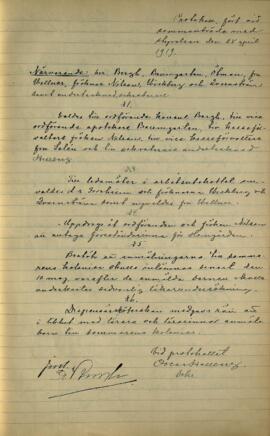 Protokoll, fört vid
sammanträde med
styrelsen den 28 april
1919.
Närvarande: hrr Bergh, Baumgarten, Öhman, fru
Wellner, fröknar Nilson, Weckberg och Zwenström
samt undertecknad, sekreterare.
§1.
Valdes till ordförande konsul Bergh, till vice
ordförande apotekare Baumgarten, till kassaför-
valtare fröken Nilson, till vice kassaförvaltare
fru och till sekreterare undertecknad
§2.
Till ledamöter i arbetsutskottet om-
valdes och fröknarna Weckberg och
Zwenström samt nyvaldes fru Wellner.
§4.
Uppdrogs åt ordföranden och fröken Nilson
att antaga föreståndarinna för
§5.
Beslöts att anmälningarna till sommar-
ens kolonier skulle inlämnas senast den
10 maj varefter de anmälda barnen skulle
underkastas sedvanlig läkareundersökning.
§6.
Dispensär medgavs rätt att
i likhet med lärare och lärarinnor anmäla
barn till sommarens kolonier.
Vid protokollet
Oscar
Sekr.
Just.